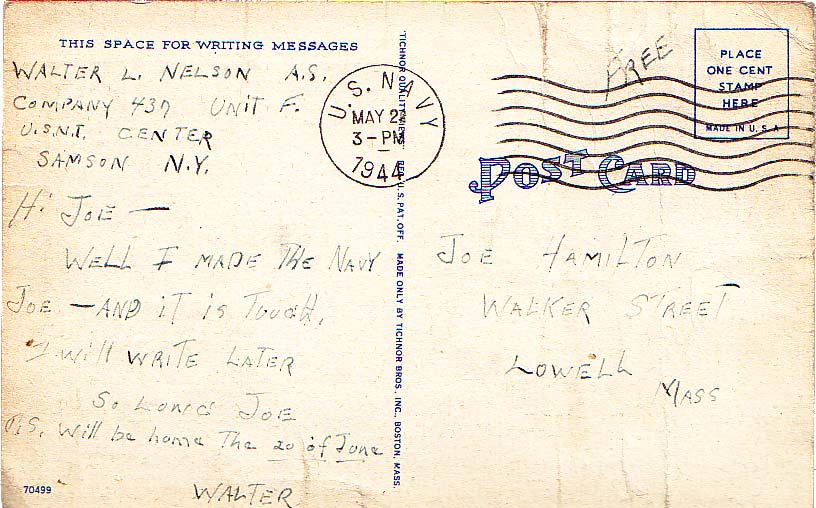 THIS SPACE FOR WRITING MESSAGES
WALTER L. NELSON A.S.
COMPANY 437 UNIT F.
U.S.N.T. CENTER
SAMSON N.Y.
Hi JOE —
WELL I MADE THE NAVY
JOE — AND iT iS TOUGH.
I Will WRITE LATER
SO LONG JOE
P.S. Will be home The 20 of June
WALTER
70499
TICHNOR QUALITY VIEWS REG. U.S. PAT. OFF. MADE ONLY BY TICHNOR BROS. INC., BOSTON, MASS.
U.S. NAVY
MAY 22
3-PM
1944
FREE
PLACE
ONE CENT
STAMP
HERE
MADE IN U.S.A
POST CARD
JOE HAMILTON
WALKER STREET
LOWELL
MASS